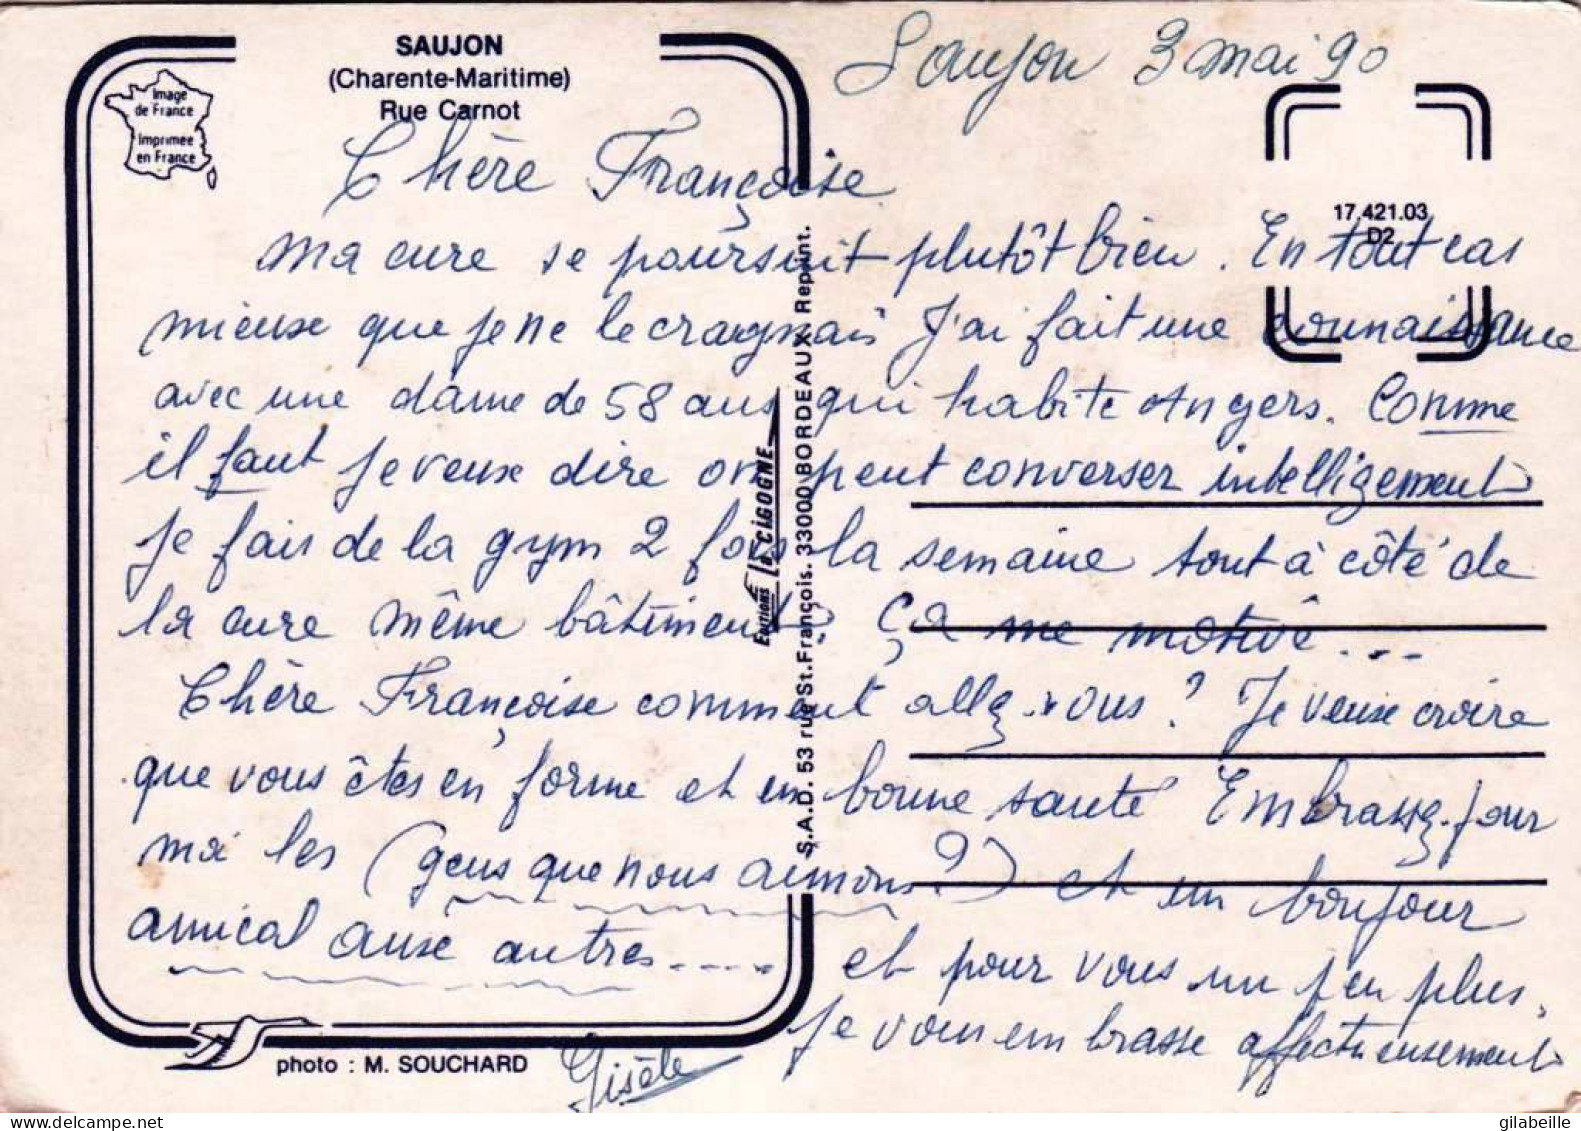 SAUJON
(Charente-Maritime)
Rue Carnot
Image
de France
Imprimée
en France
Saujon 3 mai 90
17.421.03
D2
Chère Françoise
Ma cure se poursuit plutôt bien. En tout cas
mieuse que je ne le craignais J'ai fait une connaissance
avec une dame de 58 ans qui habite Angers. Comme
il faut je veux dire on peut converser intelligement
je fais de la gym 2 fois la semaine tout à côté de
la cure même bâtiment. ça me motive...
Chère Françoise comment allez-vous? Je veuse croire
que vous êtes en forme et en bonne santé Embrassez-pour
moi les (gens que nous aimons?) et un bonjour
amical ause autres.....
et pour vous un peu plus.
je vous embrasse affectueusement
Gisèle
Editions la CIGOGNE
S.A.D. 53 rue St.François. 33000 BORDEAUX Reprint.
photo : M. SOUCHARD
gilabeille